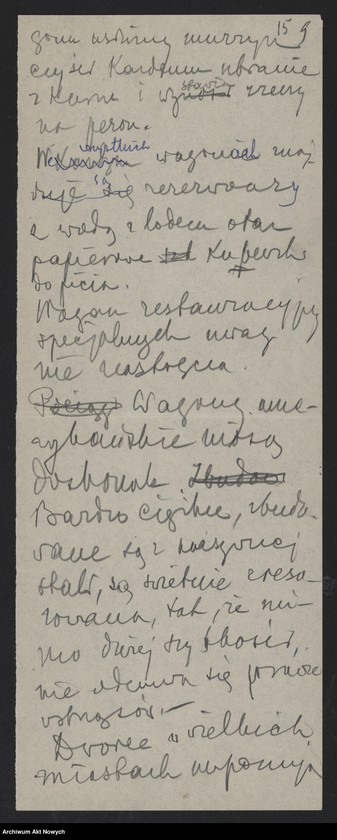 15 9
gonu usłużny murzyn
czyści każdemu ubranie
z kurzu i wystawi rzeczy
na peron.
We wszystkich wagonach znaj
dują się rezerwoary
z wodą z lodem oraz
papierowe kubeczki
do picia.
Wagon restauracyjny
specjalnych uwag
nie nastręcza.
Wagony ame-
rykańskie niosą
doskonale.
Bardzo ciężkie, zbudo-
wane są z masywnej
stali, są świetnie zreso-
rowane, tak, że mi-
mo dużej szybkości,
nie odczuwa się prawie
wstrząsów.—
Dworce w wielkich
miastach
Archiwum Akt Nowych